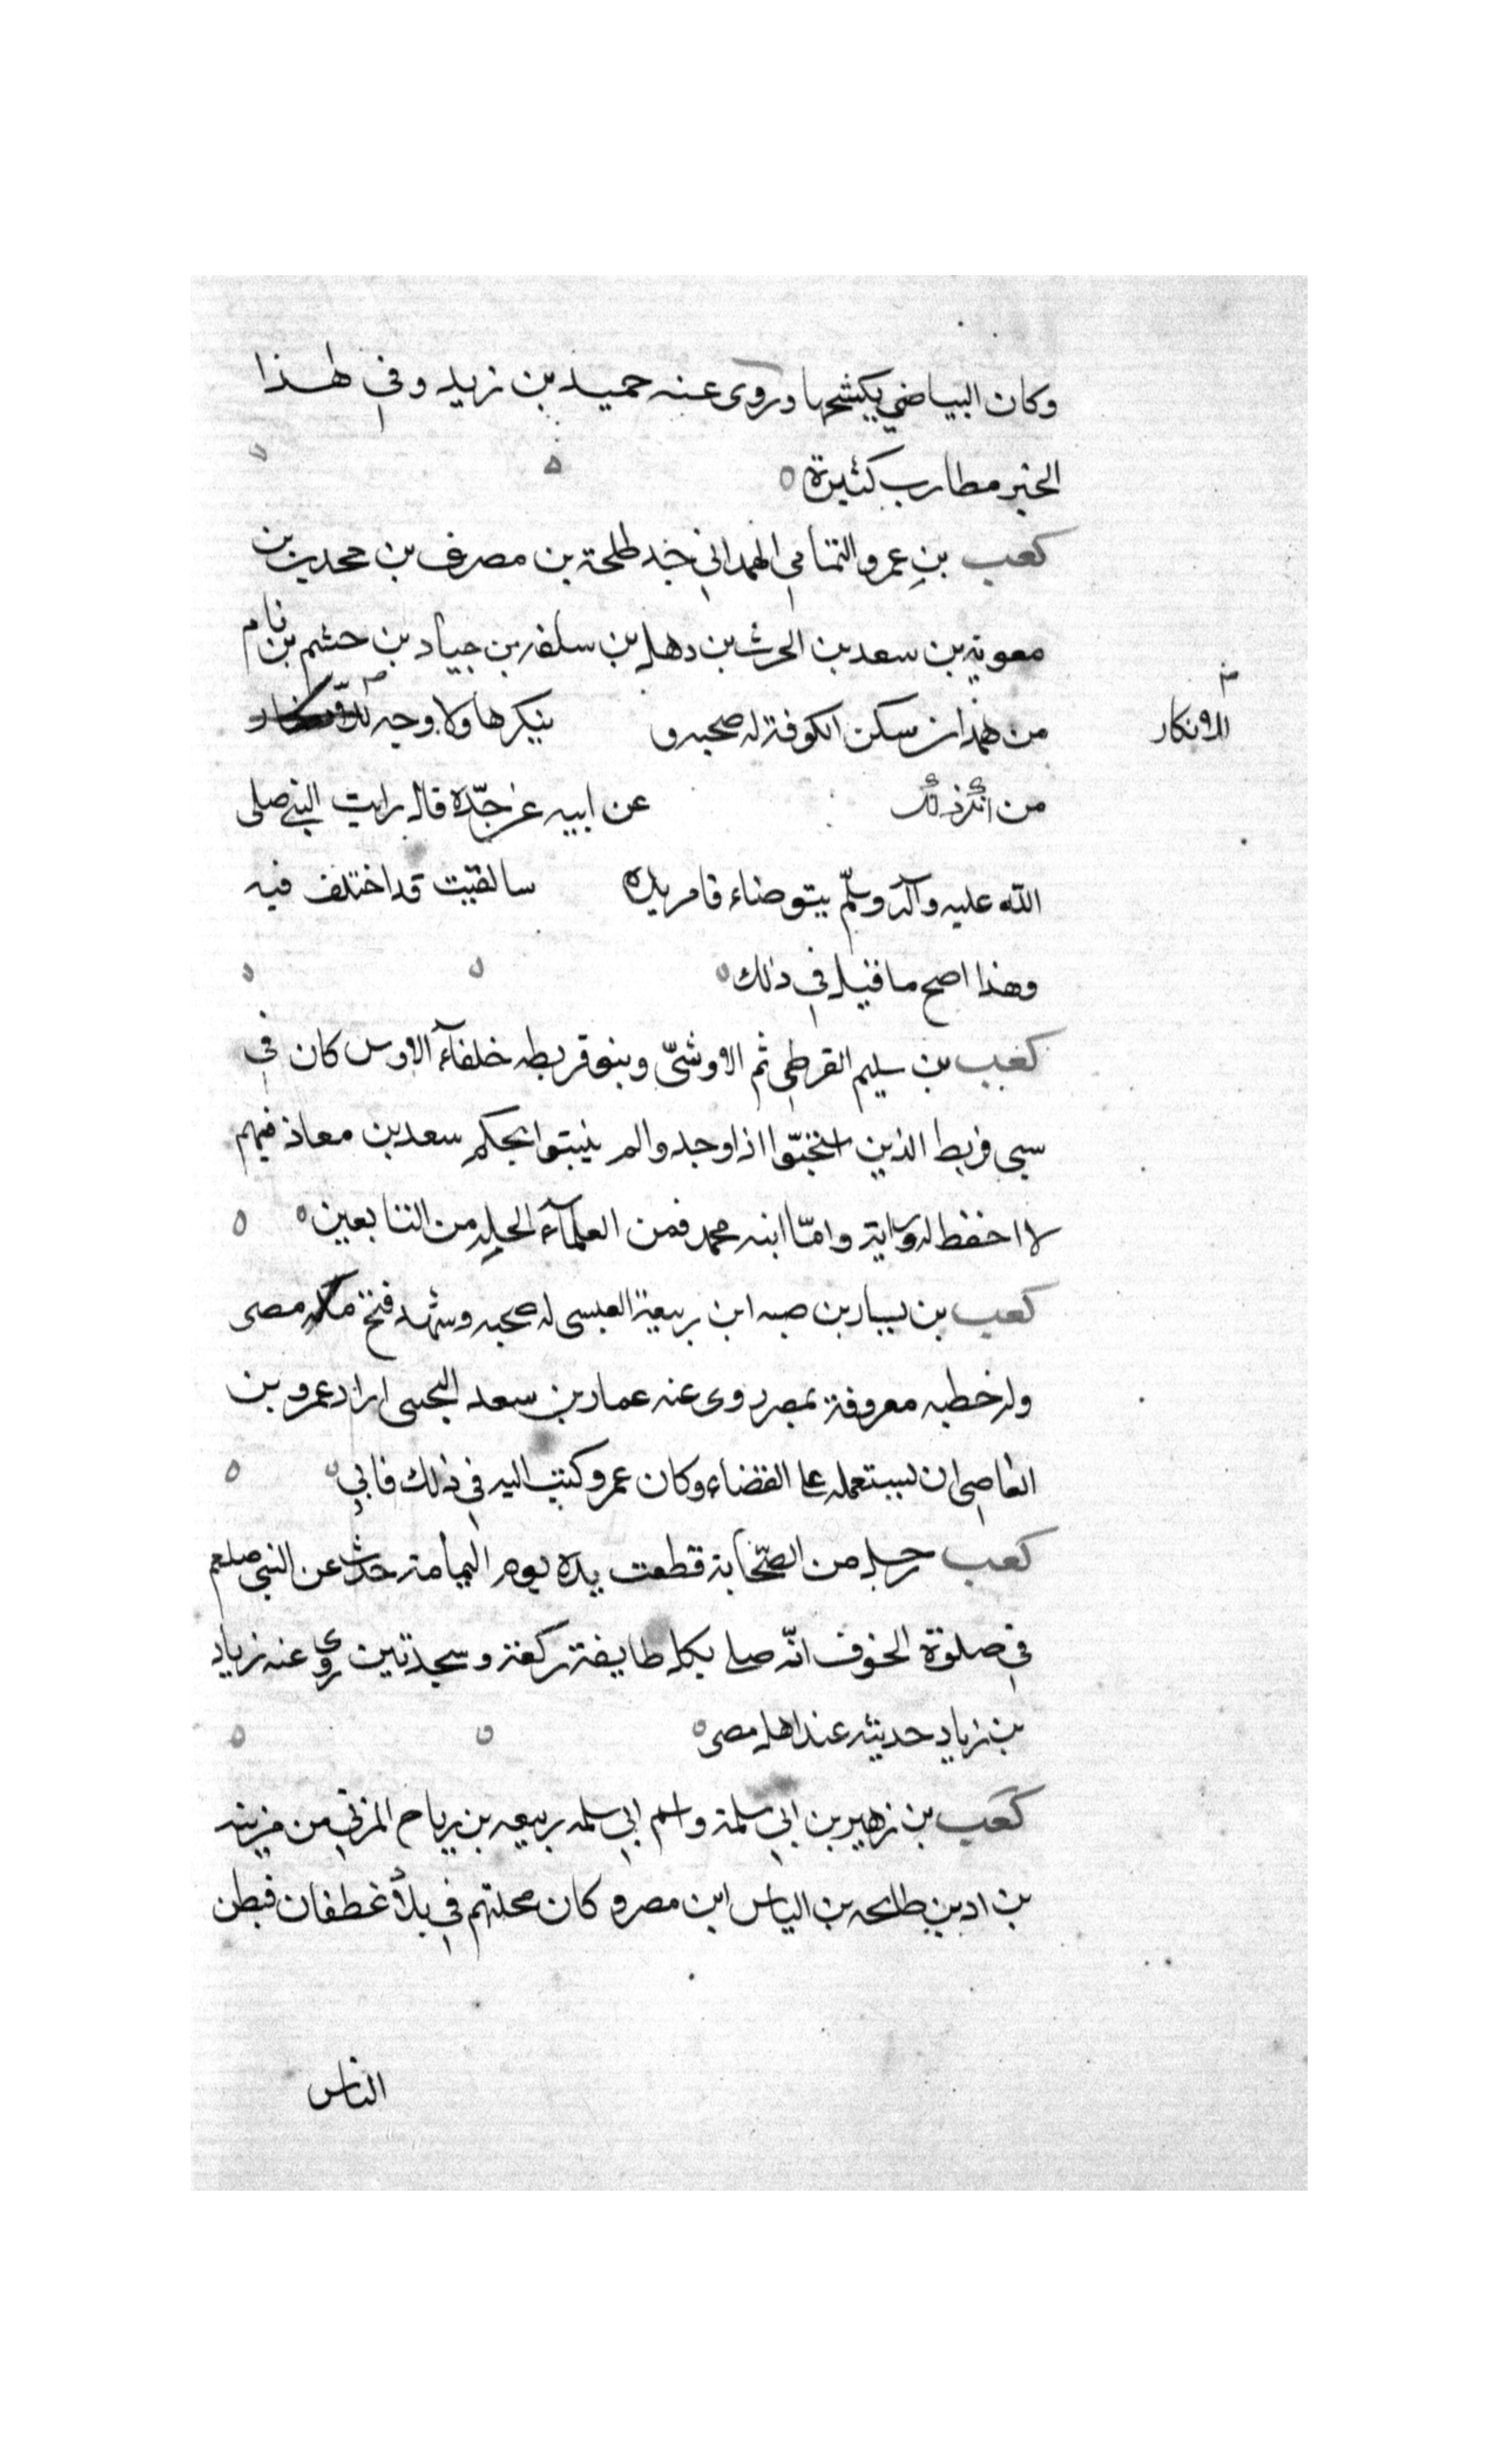 وكان البياضي بكشحها وروى عنه حميد بن زيد وفي هذا
الخبر مطارب كثيرة
كعب بن عمرو التمامي الهمداني خد طلحة بن مصرف بن محمد بن
معوية بن سعد بن الحرث بن دهل بن سلمة بن جياد بن حشم بن نام
من همدان سكن الكوفة له صحبه و ينكرها ولا وجه
الانكار
من انكر ذلك عن ابيه عن جده قال رايت النبي صلى
الله عليه وآله وسلم يتوضاء فامر يده سالفتيت قد اختلف فيه
وهذا اصح ما قيل في ذلك
كعب بن سليم القرظي ثم الاوشيّ وبنو قريطه خلفاء الاوس كان في
سبي قريظ الذين اذا وجدوا لم ينبتوا بحكم سعد بن معاذ فيهم
لا احفظ له رواية وامّا ابنه محمد فمن العلمآء الجله من التابعين
كعب بن يسار بن صبه ابن ربيعة العبسى له صحبه وشهد فتح مصر
وله خطبه معروفة بمصر روى عنه عمار بن سعد البجسى اراد عمرو بن
العاصي ان يستعمله على القضاء وكان عمرو كتب اليه في ذلك فابي
كعب رجل من الصحابة قطعت يده يوم اليمامة حدث عن النبي صلعم
في صلوة الخوف انّه صلى بكل طايفة ركعة وسجدتين روى عنه زياد
بن زياد حديثه عند اهل مصر
كعب بن زهير بن ابي سلمة واسم ابي سلمه ربيعه بن رياح المزني من مزينه
بن اد بن طلحه بن الياس ابن مصر و كان محلتهم في بلاد غطفان فبطن
الناس